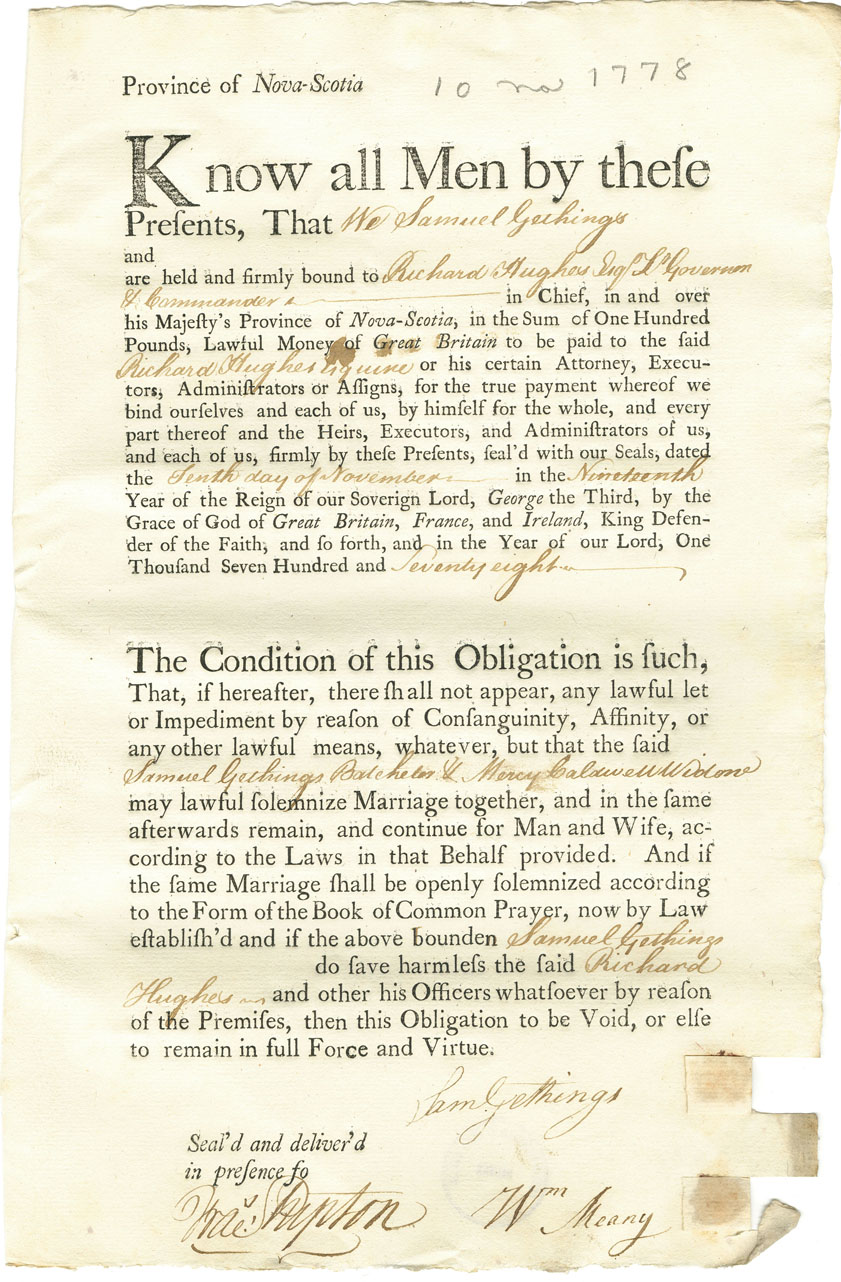 Province of Nova-Scotia
10 no 1778
Know all Men by theſe
Preſents, That We Samuel Gethings
and
are held and firmly bound to Richard Hughes Esqr Lt Governor
& Commander in Chief, in and over
his Majeſty's Province of Nova-Scotia, in the Sum of One Hundred
Pounds, Lawful Money of Great Britain to be paid to the ſaid
Richard Hughes Esquire or his certain Attorney, Execu-
tors, Adminiſtrators or Aſſigns, for the true payment whereof we
bind ourſelves and each of us, by himſelf for the whole, and every
part thereof and the Heirs, Executors, and Adminiſtrators of us,
and each of us, firmly by theſe Preſents, ſeal'd with our Seals, dated
the Tenth day of November in the Nineteenth
Year of the Reign of our Soverign Lord, George the Third, by the
Grace of God of Great Britain, France, and Ireland, King Defen-
der of the Faith, and ſo forth, and in the Year of our Lord, One
Thouſand Seven Hundred and Seventy eight
The Condition of this Obligation is ſuch,
That, if hereafter, there ſhall not appear, any lawful let
or Impediment by reaſon of Conſanguinity, Affinity, or
any other lawful means, whatever, but that the ſaid
Samuel Gethings Batchelor & Mercy Caldwell Widow
may lawful ſolemnize Marriage together, and in the ſame
afterwards remain, and continue for Man and Wife, ac-
cording to the Laws in that Behalf provided. And if
the ſame Marriage ſhall be openly ſolemnized according
to the Form of the Book of Common Prayer, now by Law
eſtabliſh'd and if the above bounden Samuel Gethings
do ſave harmleſs the ſaid Richard
Hughes and other his Officers whatſoever by reaſon
of the Premiſes, then this Obligation to be Void, or elſe
to remain in full Force and Virtue.
Saml Gethings
Seal'd and deliver'd
in preſence fo
Shipton Wm Meany